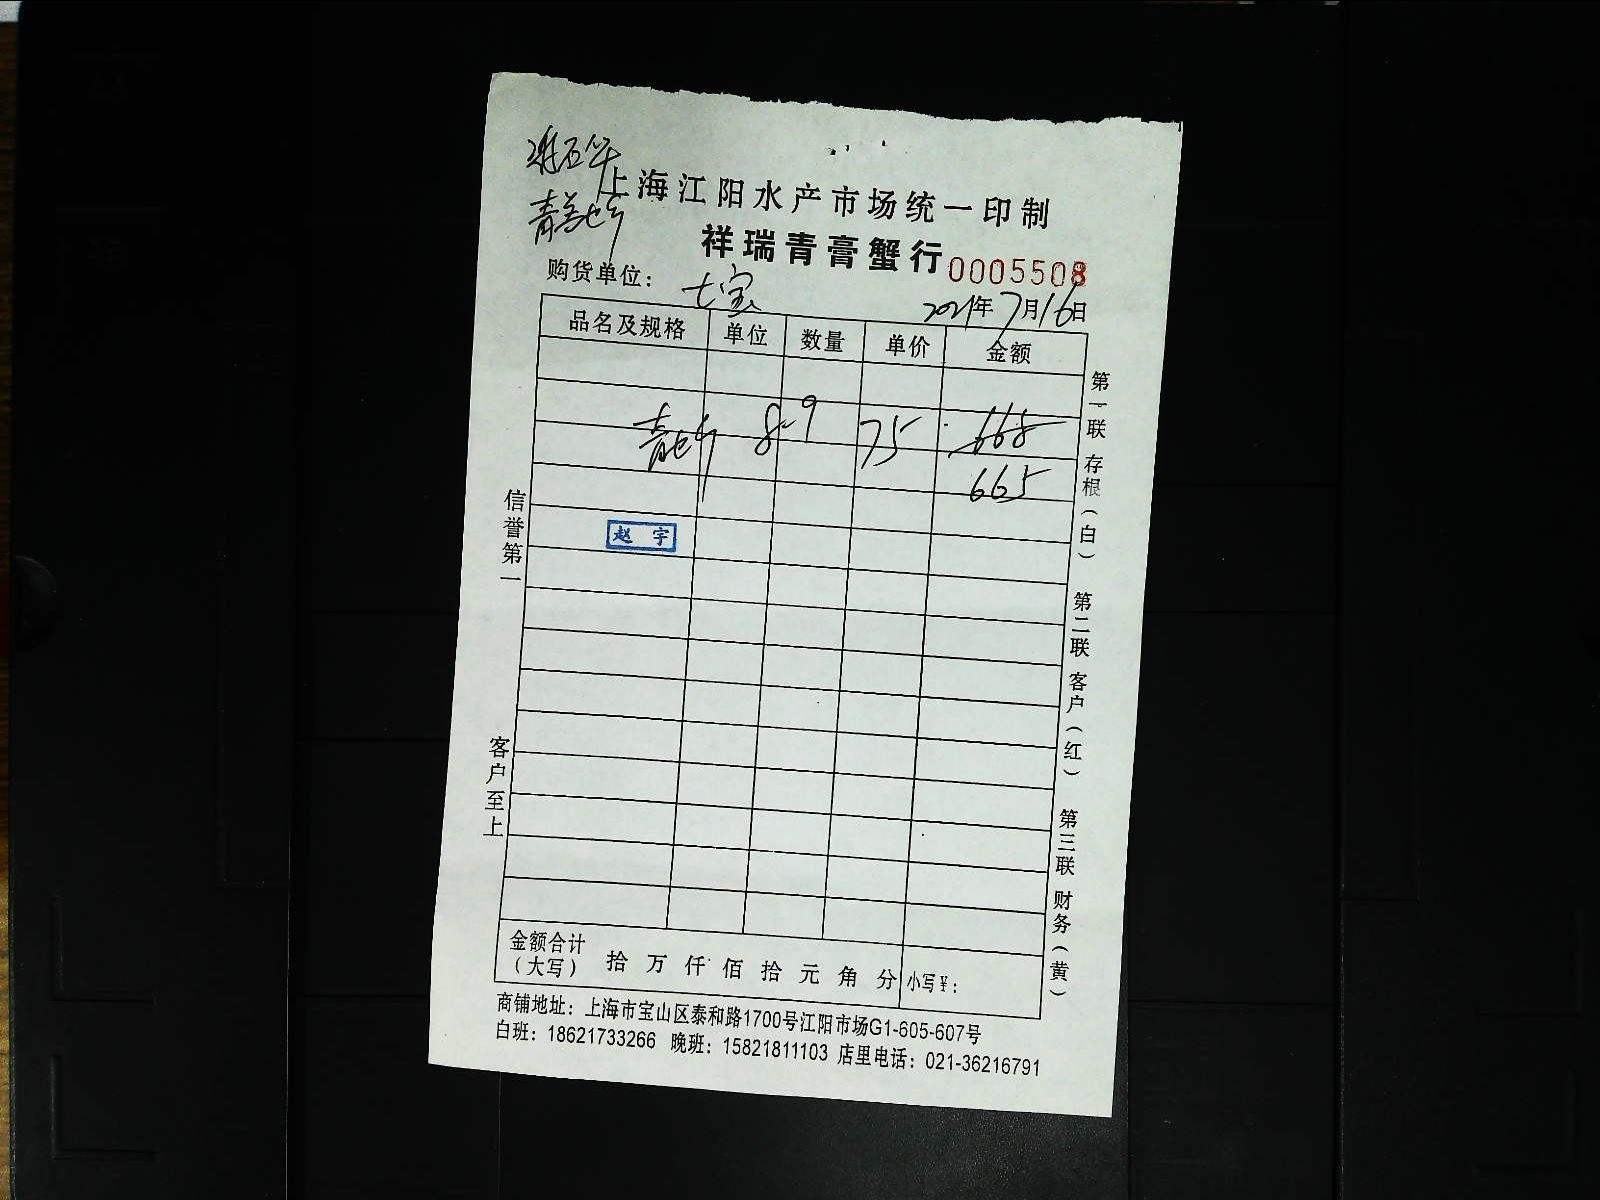 上海江阳水产市场统一印制
祥瑞青膏蟹行 0005508
购货单位： 七宝
2021年7月16日
品名及规格 单位 数量 单价 金额
青 8-9 75 668
665
赵宇
信誉第一
客户至上
第一联 存根（白） 第二联 客户（红） 第三联 财务（黄）
金额合计（大写） 拾 万 仟 佰 拾 元 角 分 小写¥：
商铺地址：上海市宝山区泰和路1700号江阳市场G1-605-607号
白班：18621733266 晚班：15821811103 店里电话：021-36216791